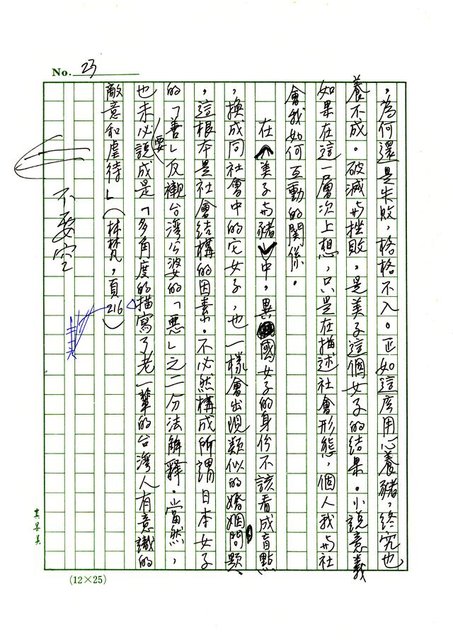 No. 23
，為何還是失敗，格格不入。正如這席用心養豬，終究也
養不成。破滅與挫敗，是美子這個女子的結果。小說意義
如果在這一層次上想，只是在描述社會形態，個人我與社
會我如何互動的關係。
在〈美子與豬〉中，異國女子的身份不該看成盲點
，換成同社會中的它女子，也一樣會出現類似的婚姻問題
，這根本是社會結構的因素。不必然構成所謂日本女子
的「善」反襯台灣公婆的「惡」之二分法解釋。當然，
也未必要說成是「多角度的描寫了老一輩的台灣人有意識的
敵意和虐待」（林梵，頁216）
不要空
(12×25)